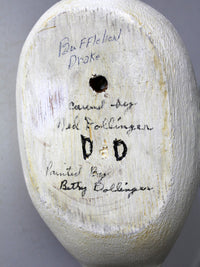 Bufflehead
Drake
Carved by
Ned Dollinger
D D
Painted By
Betty Dollinger